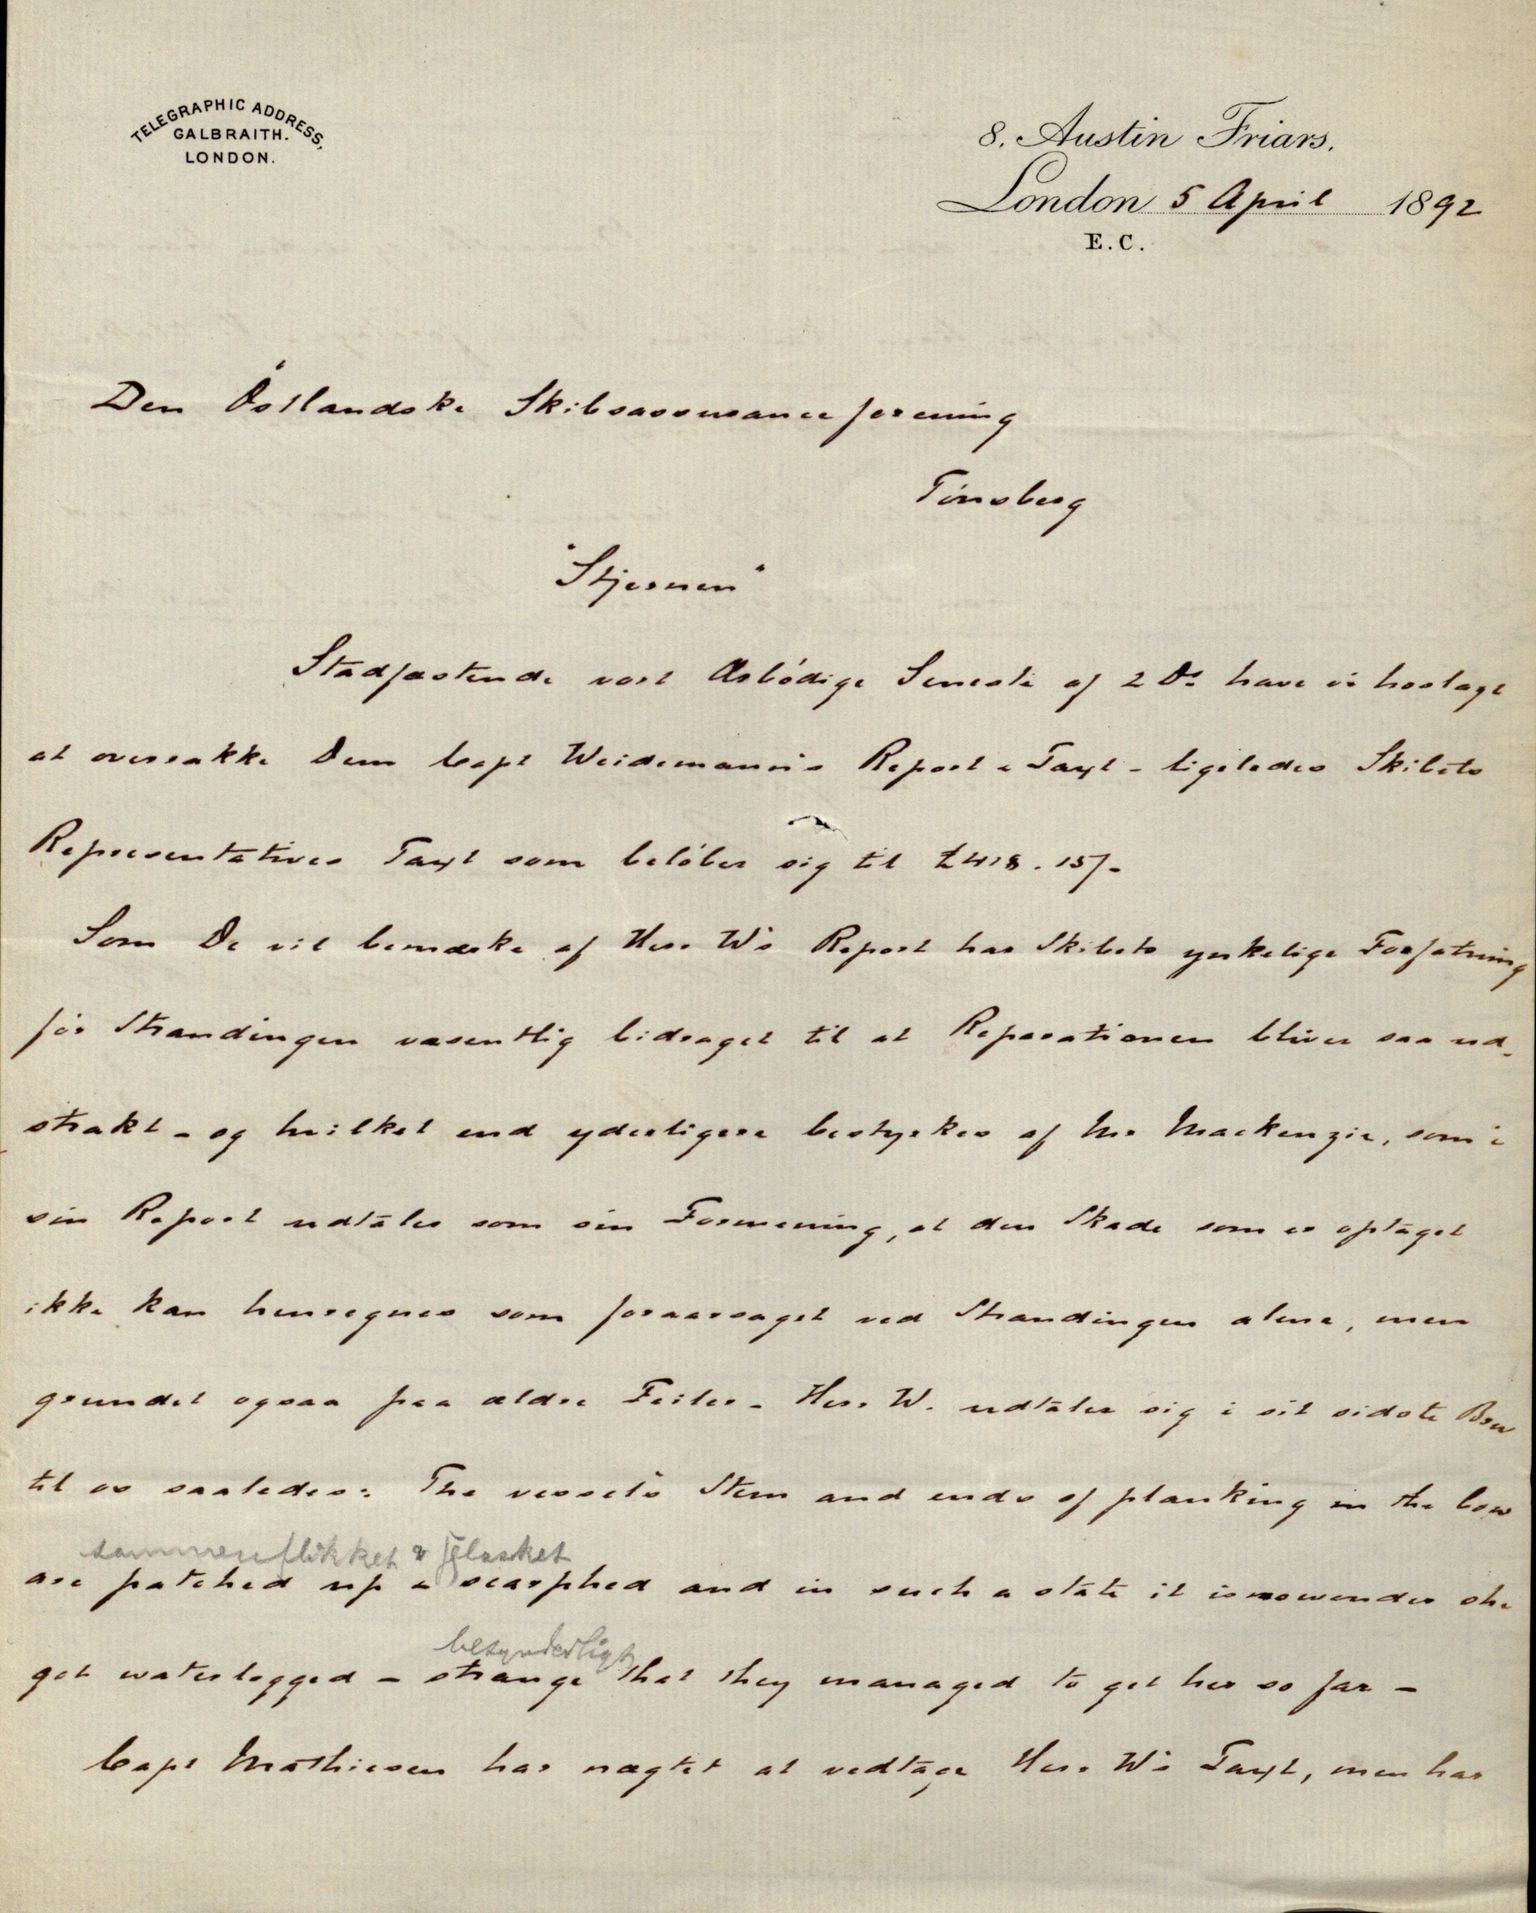 TELEGRAPHIC ADDRESS,
GALBRAITH.
LONDON.
8, Austin Friars.
London 5 April 1892
E.C.
Den Östlandske Skibsassuranceforening
Tönsberg
"Stjernen"
Stadfæstende vort Ærbödige Seneste af 2 Ds have vi hoslagt
at oversække Dem Capt Weidemann's Report & Taxt - ligeledes Skibets
Representatives Taxt som belöber sig til £418.15/-
Som De vil bemærke af Herr W's Report har Skibets ynkelige Forfatning
för Strandingen væsentlig bidraget til at Reparationen bliver saa ud-
strakt - og hvilket end yderligere bestyrkes af Mr Mackenzie, som i
sin Report udtaler som sin Formening, at den Skade som er optaget
ikke kan henregnes som foraarsaget ved Strandingen alene, men
grundet ogsaa paa ældre Feiler - Herr W. udtaler sig i sit sidste Brev
til os saaledes: The vessel's Stem and ends of planking in the bow
sammenflikket & lasket
are patched up & scarphed and in such a state it is no wonder she
besynderligt
got waterlogged - strange that they managed to get her so far -
Capt Mathiesen har nægtet at vedtage Herr W's Taxt, men har